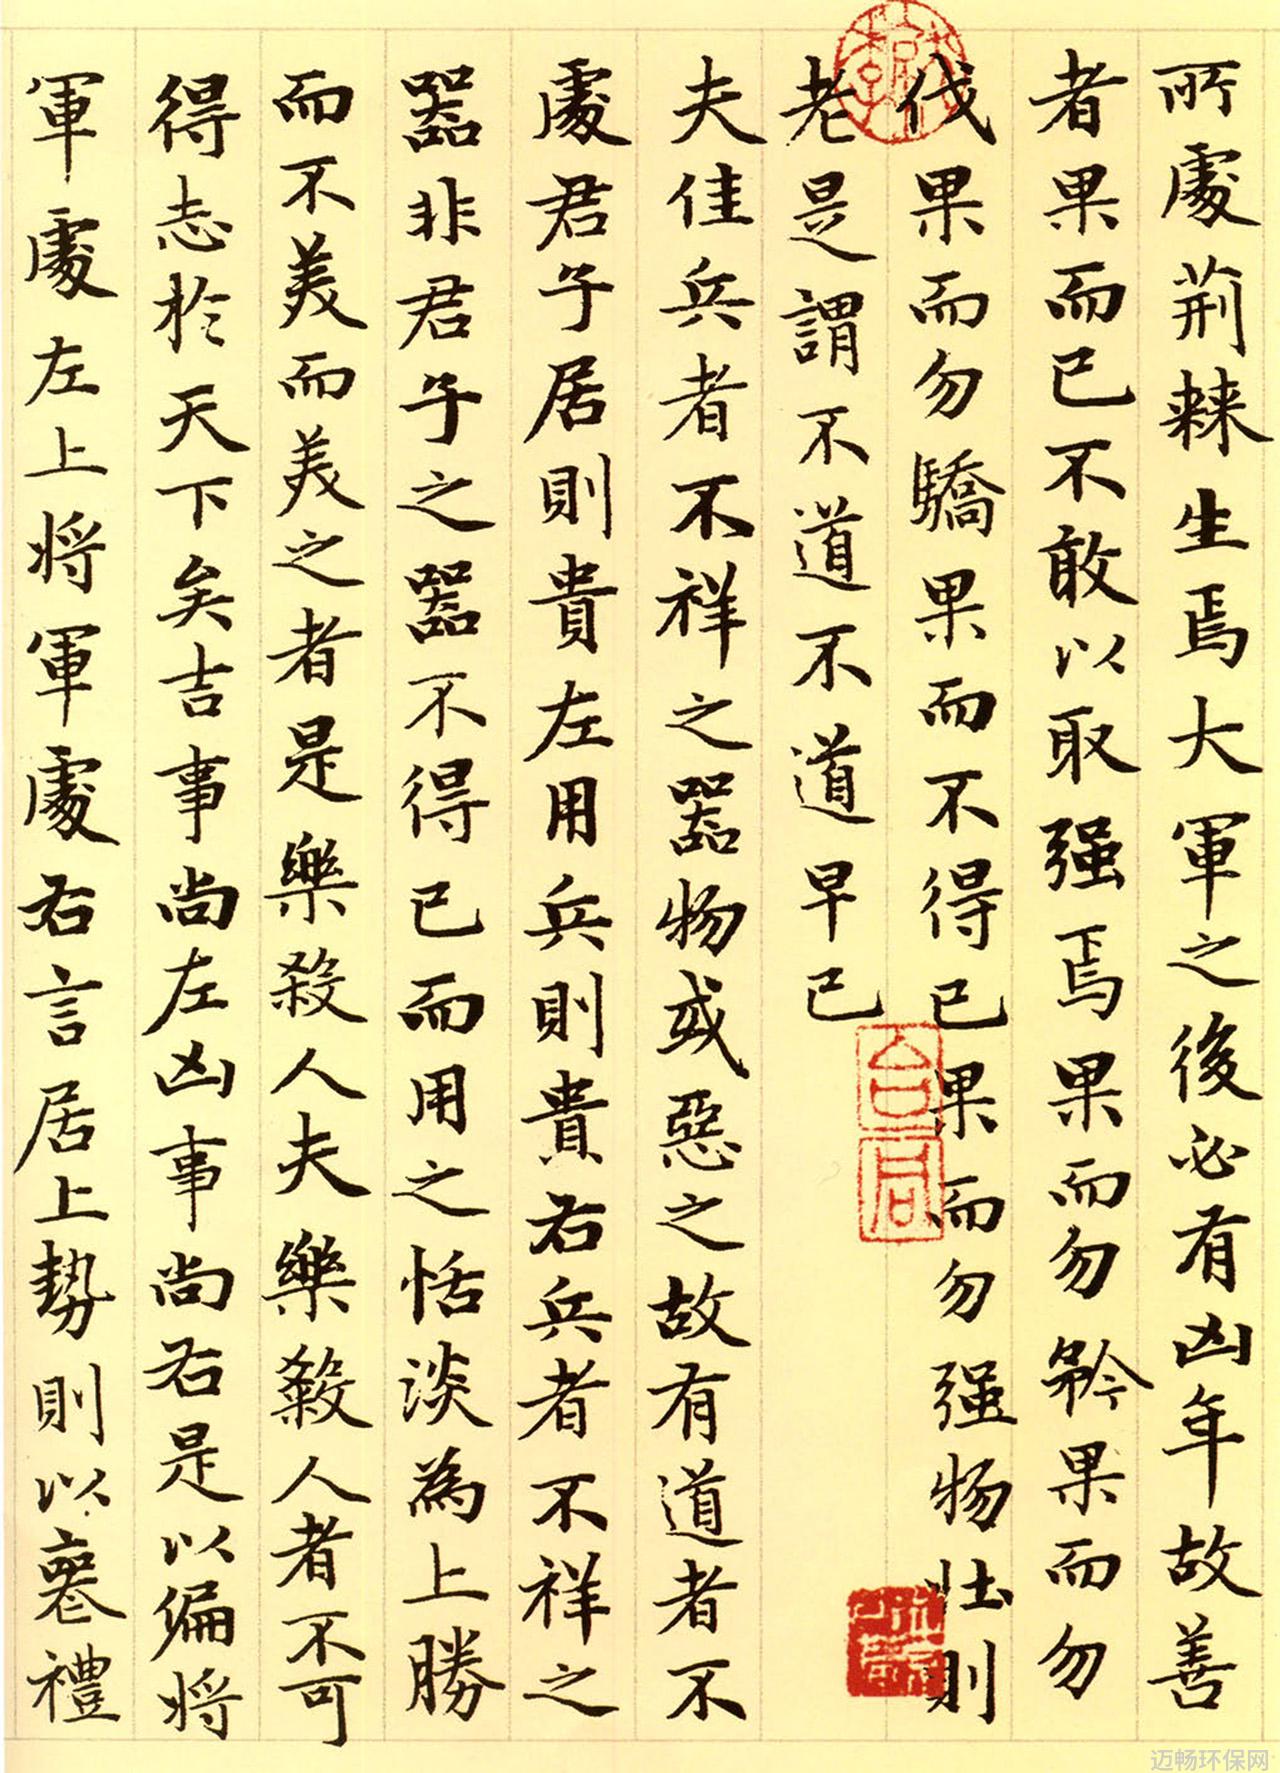 所處荊棘生焉大軍之後必有凶年故善
者果而已不敢以取强焉果而勿矜果而勿
伐果而勿驕果而不得已果而勿强物壯則
老是謂不道不道早已
夫佳兵者不祥之器物或惡之故有道者不
處君子居則貴左用兵則貴右兵者不祥之
器非君子之器不得已而用之恬淡為上勝
而不美而美之者是樂殺人夫樂殺人者不可
得志於天下矣吉事尚左凶事尚右是以偏將
軍處左上將軍處右言居上勢則以喪禮
迈畅环保网